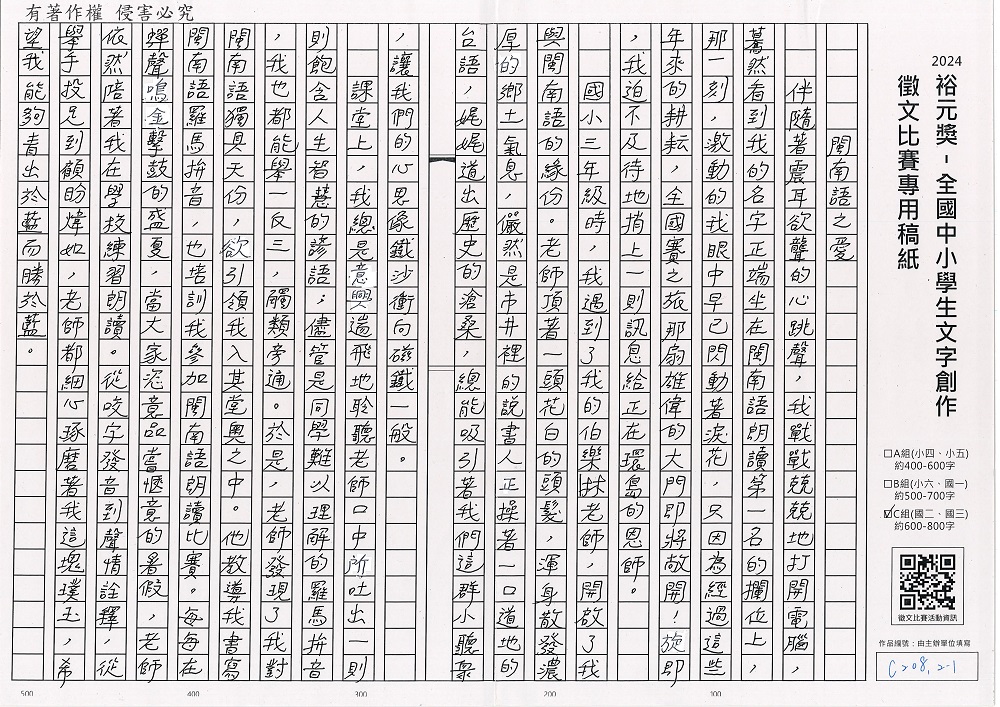 有著作權 侵害必究
2024
裕元獎-全國中小學生文字創作
徵文比賽專用稿紙
□A組(小四、小五)
約400-600字
□B組(小六、國一)
約500-700字
☑C組(國二、國三)
約600-800字
徵文比賽活動資訊
作品編號：由主辦單位填寫
C208,2-1
閩南語之愛
伴隨著震耳欲聾的心跳聲，我戰戰兢兢地打開電腦，
驀然看到我的名字正端坐在閩南語朗讀第一名的欄位上，
那一刻，激動的我眼中早已閃動著淚花，只因為經過這些
年來的耕耘，全國賽之旅那扇雄偉的大門即將敞開！旋即
，我迫不及待地捎上一則訊息給正在環島的恩師。
國小三年級時，我遇到了我的伯樂林老師，開啟了我
與閩南語的緣份。老師頂著一頭花白的頭髮，渾身散發濃
厚的鄉土氣息，儼然是市井裡的說書人正操著一口道地的
台語，娓娓道出歷史的滄桑，總能吸引著我們這群小聽眾
，讓我們的心思像鐵沙衝向磁鐵一般。
課堂上，我總是意興遄飛地聆聽老師口中所吐出一則
則飽含人生智慧的諺語；儘管是同學難以理解的羅馬拼音
，我也都能舉一反三，觸類旁通。於是，老師發現了我對
閩南語獨具天份，欲引領我入其堂奧之中。他教導我書寫
閩南語羅馬拼音，也培訓我參加閩南語朗讀比賽。每每在
蟬聲鳴金擊鼓的盛夏，當大家恣意品嘗愜意的暑假，老師
依然陪著我在學校練習朗讀。從咬字發音到聲情詮釋，從
舉手投足到顧盼煒如，老師都細心琢磨著我這塊璞玉，希
望我能夠青出於藍而勝於藍。
500
400
300
200
100